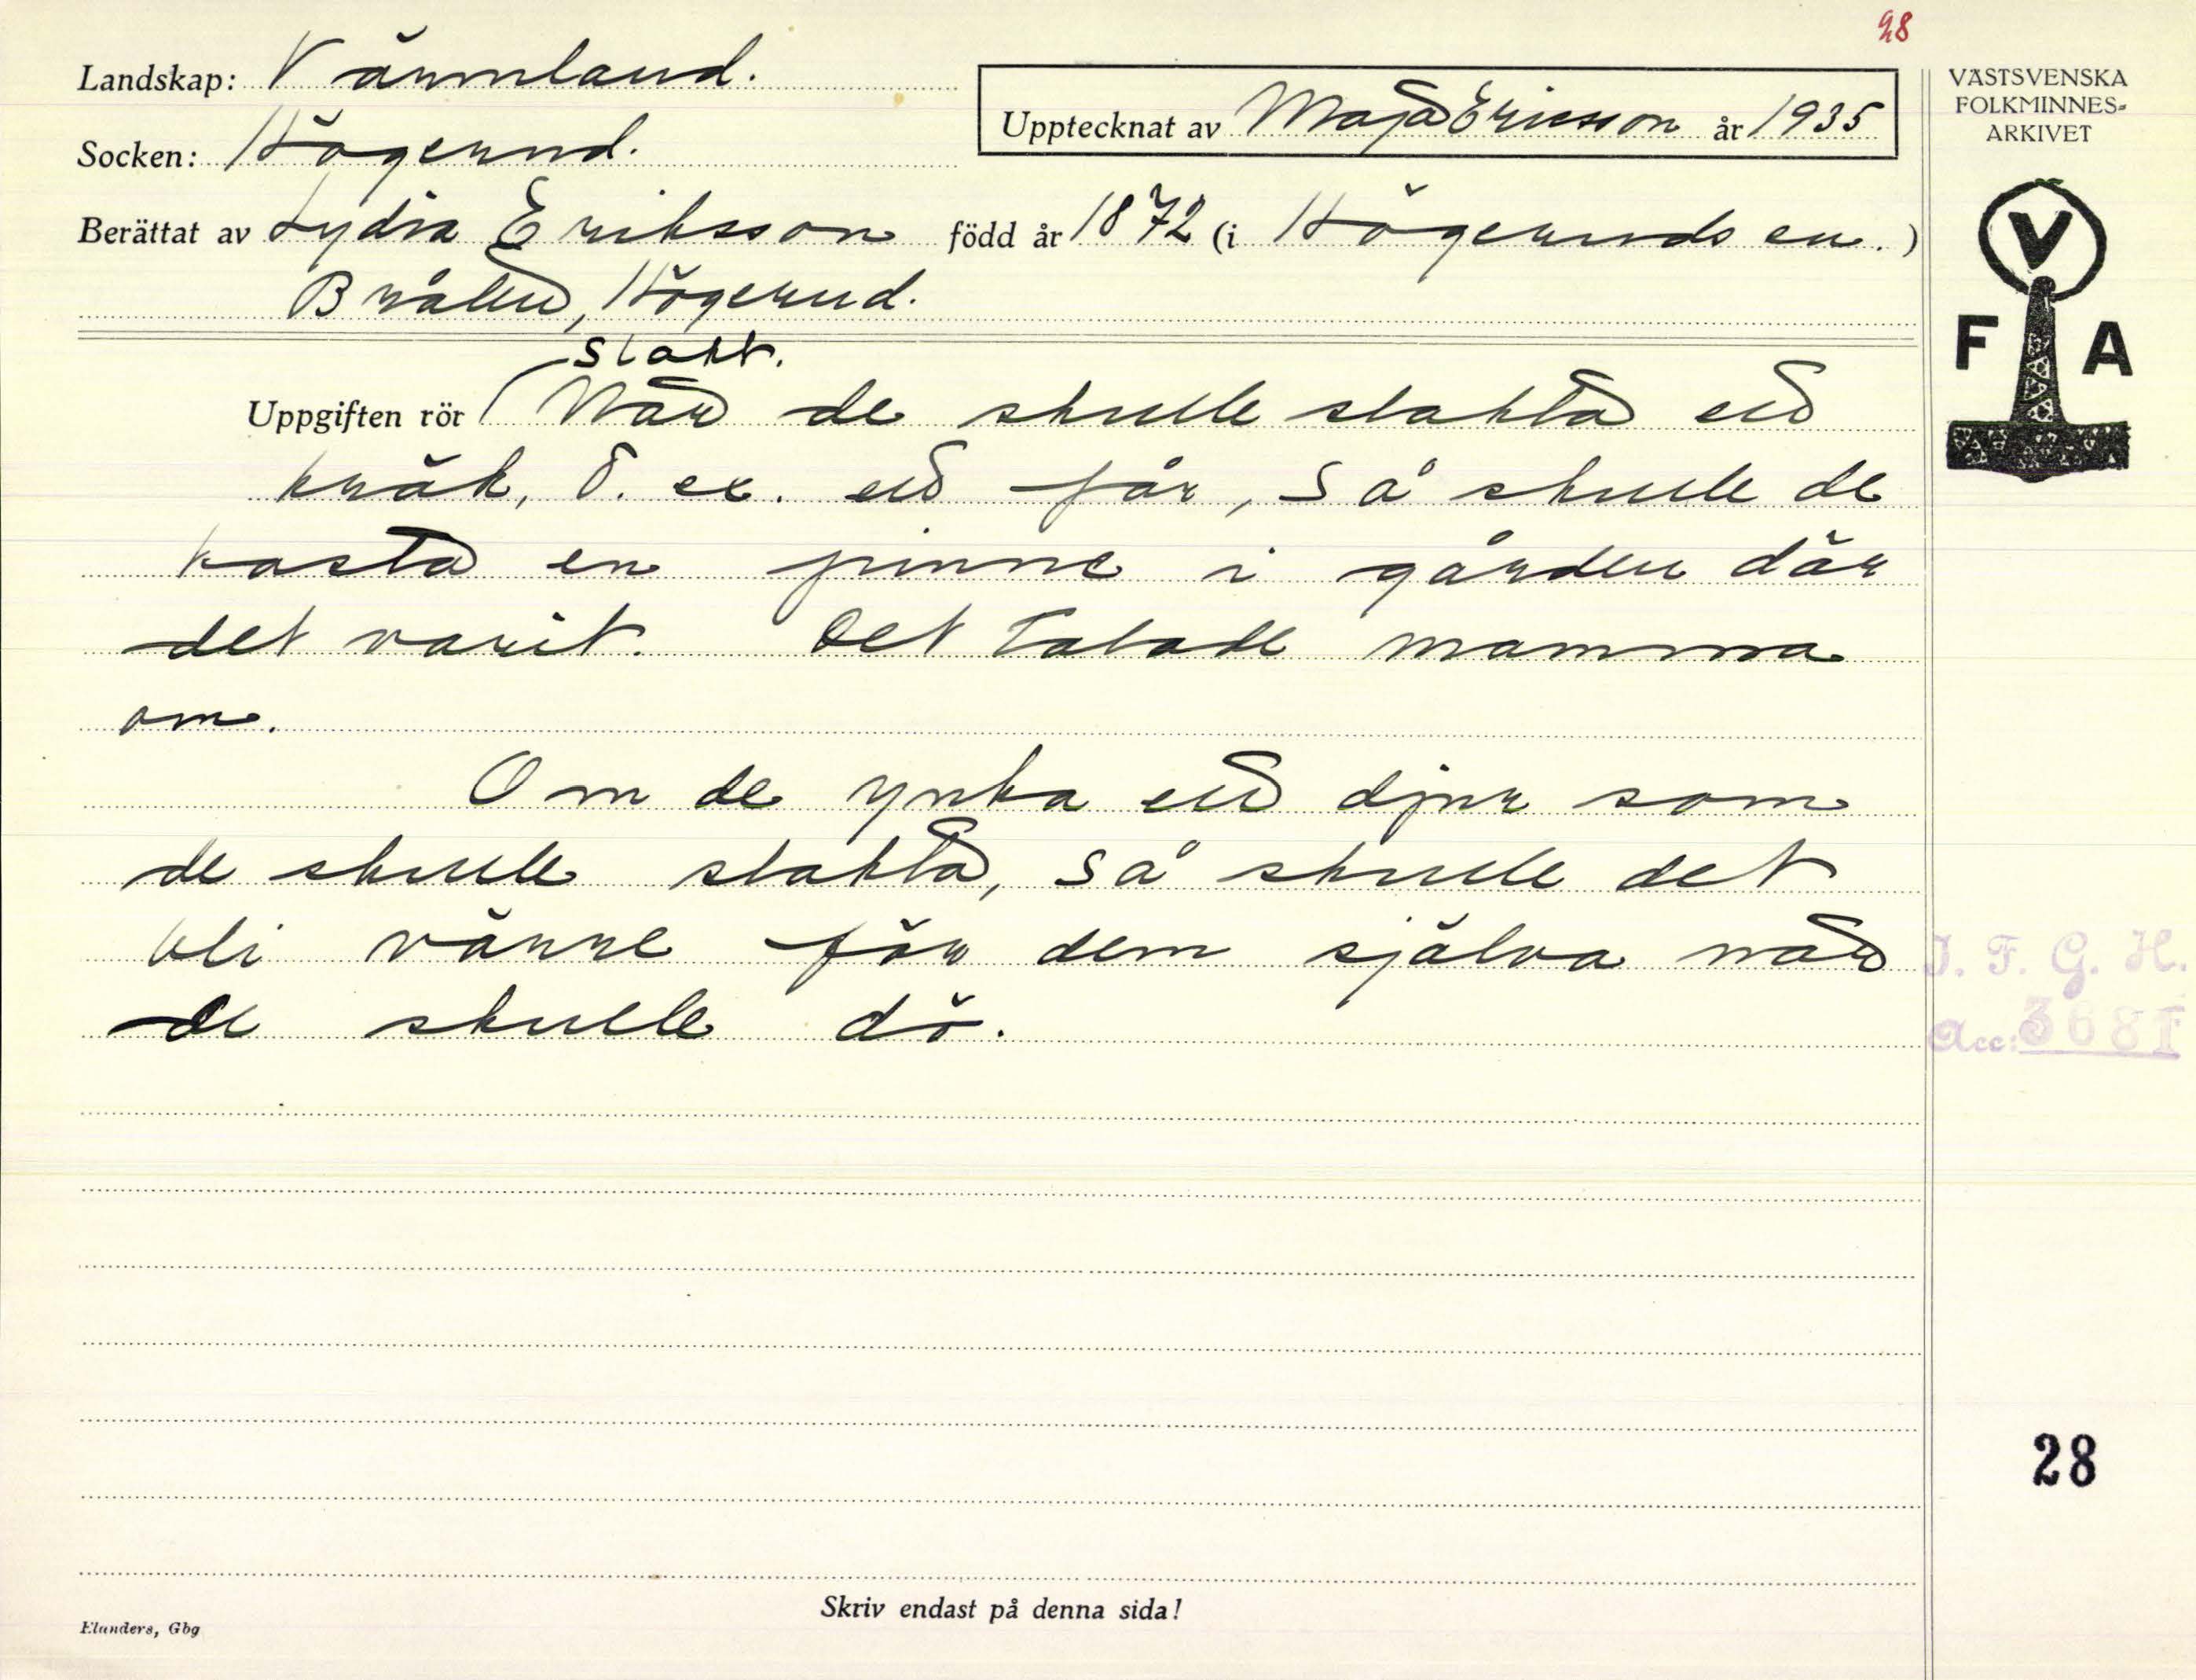 28
Landskap: Värmland.
Socken: Högerud.
Upptecknat av Maja Ericsson år 1935
Berättat av Lydia Eriksson född år 1872 (i Högeruds sn.)
Högerud.
Slakt.
Uppgiften rör När de skulle slakta ett
kräk, t. ex. ett får, så skulle de
kasta en pinne i gården där
det varit. Det talade mamma
om.
Om de ynka ett djur som
de skulle slakta, så skulle det
bli värre för dem själva när
de skulle dö.
VÄSTSVENSKA
FOLKMINNES-
ARKIVET
V
F A
I. F. G. H.
Acc: 3681
28
Skriv endast på denna sida!
Elanders, Gbg